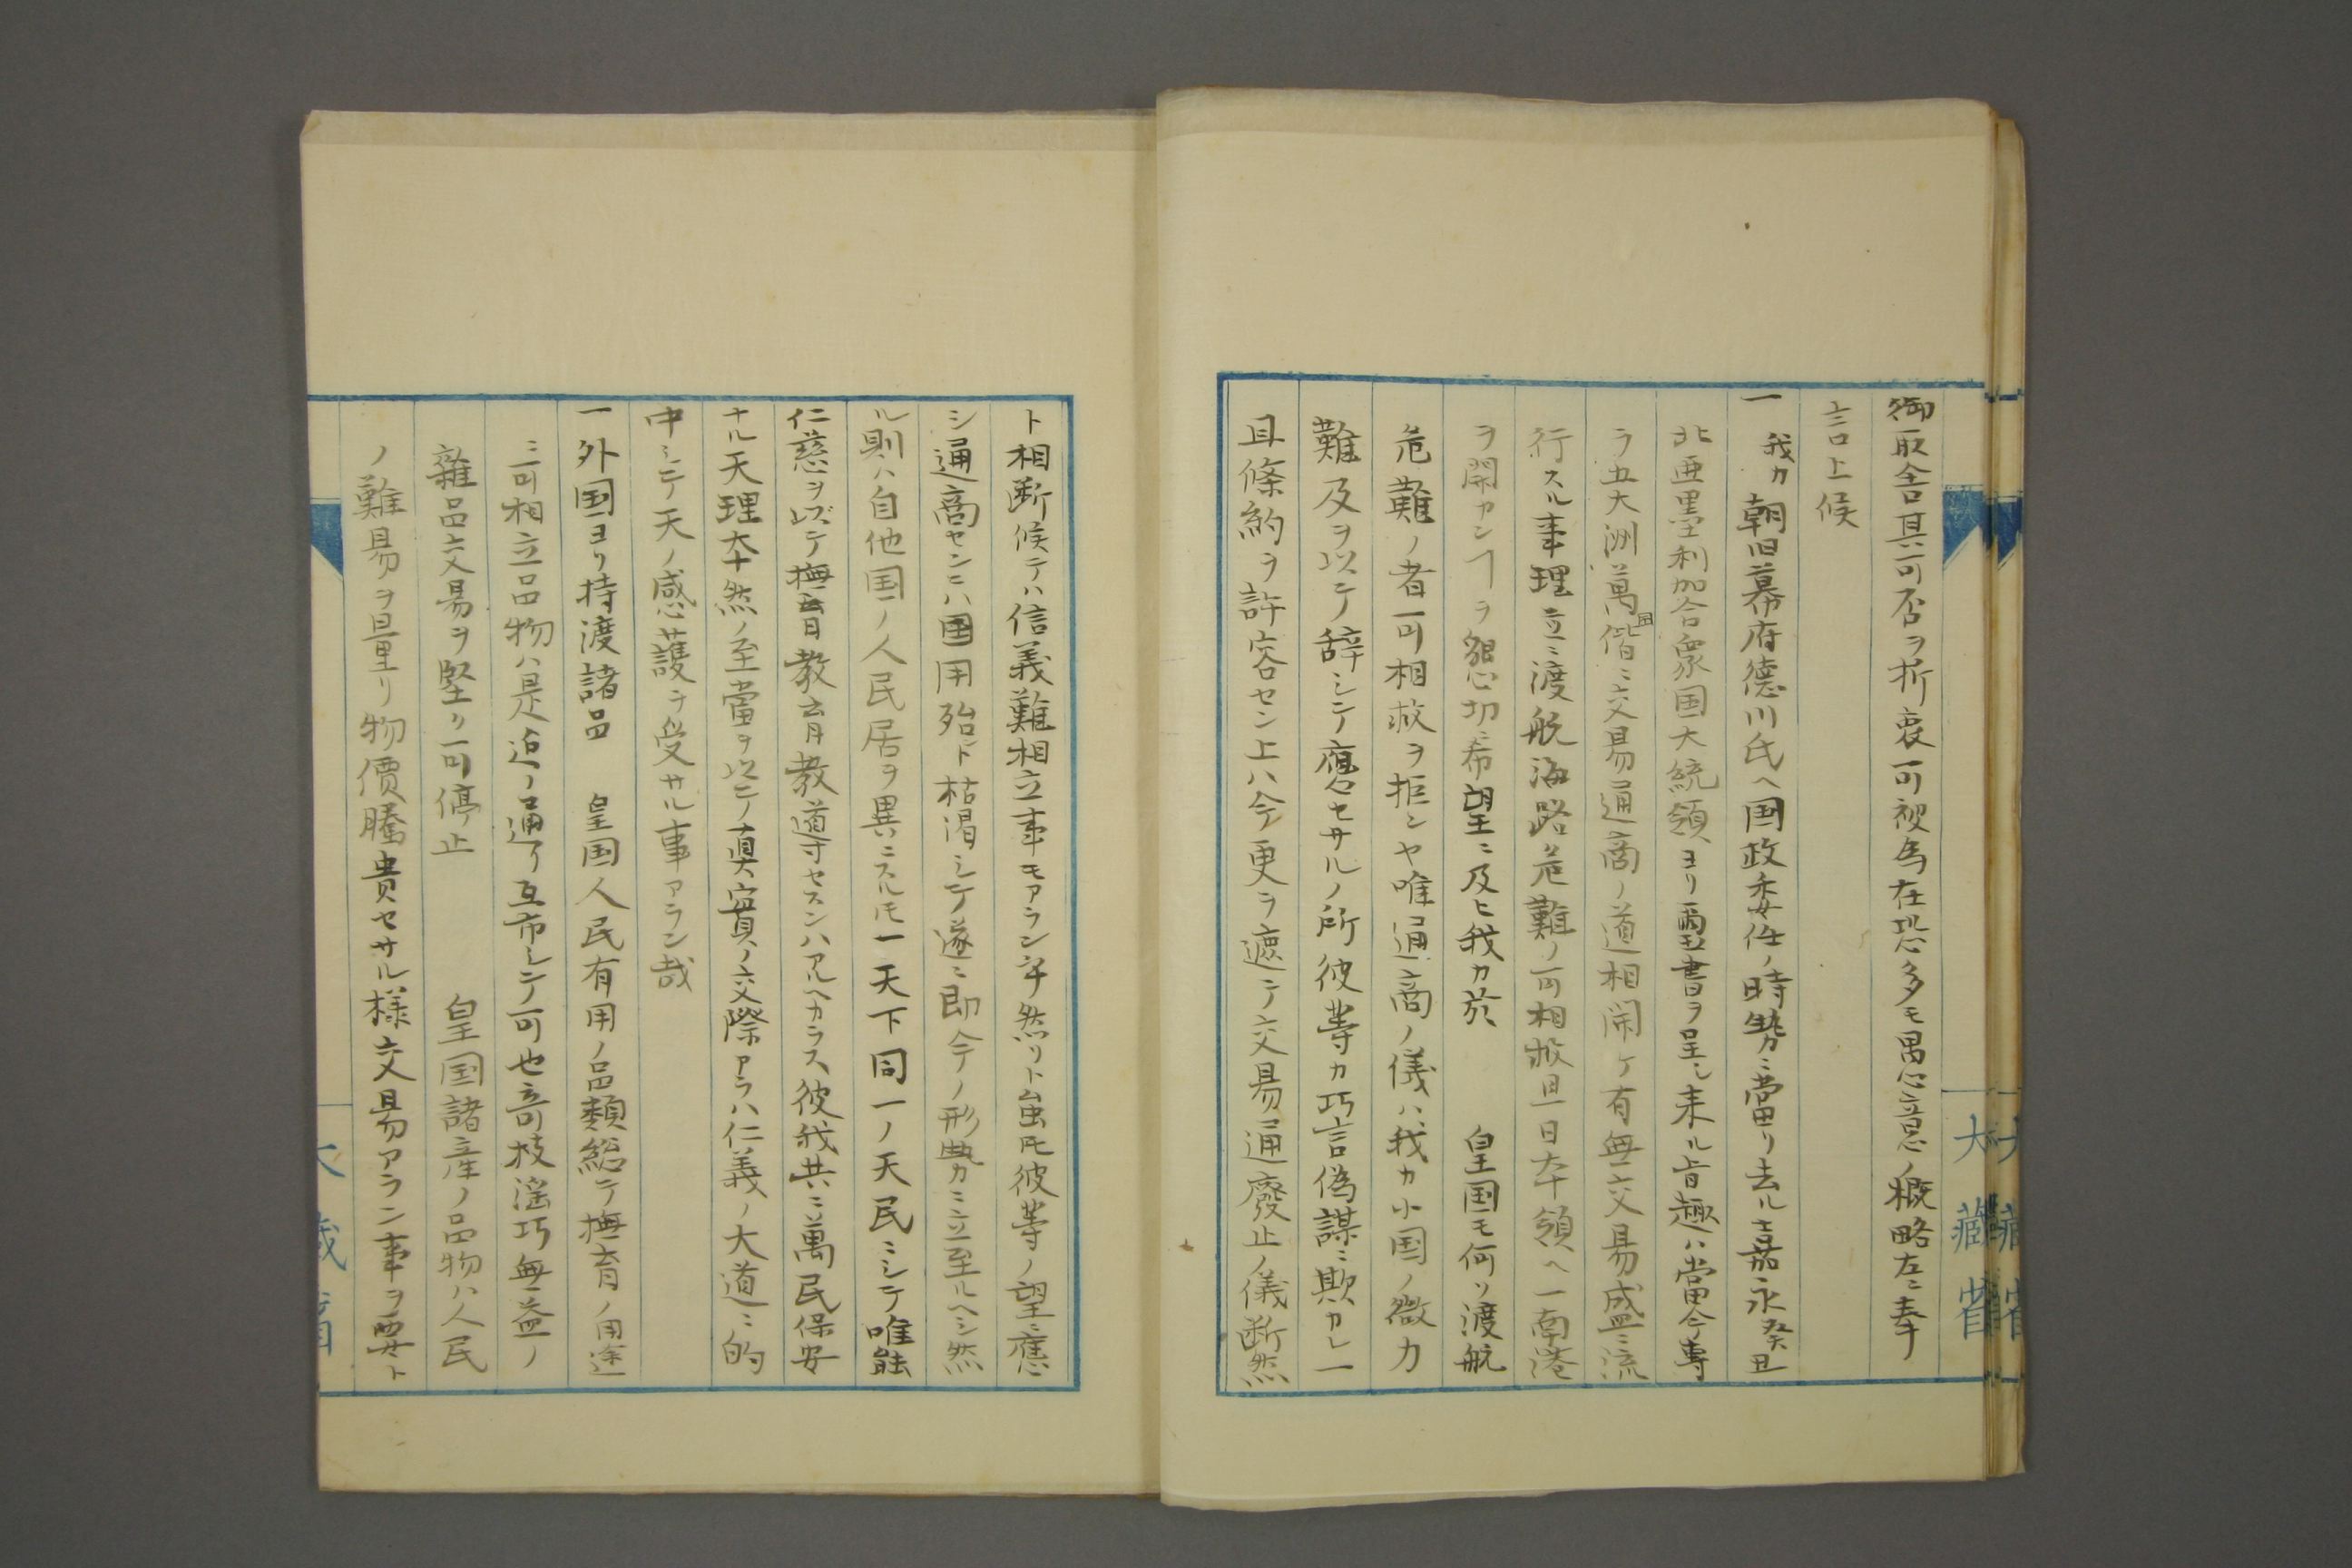 御取舍其可否ヲ折衷可被為在恐多モ愚意ノ概略左ニ奉
言上候
一 我カ 朝旧幕府德川氏ヘ国政委任ノ時勢ニ當リ去ル嘉永癸丑
北亜墨利加合衆国大統領ヨリ璽書ヲ呈シ来ル旨趣ハ當今專
ラ五大洲萬国偕ニ交易通商ノ道相開ケ有無交易盛ニ流
行スル事理立ニ渡航海路危難ノ可相救且日本領ヘ一両港
ヲ開カンヿヲ懇切ニ希望ニ及ヒ我カ於 皇国モ何ソ渡航
危難ノ者可相救ヲ拒ンヤ唯通商ノ儀ハ我カ小国ノ微力
難及ヲ以テ辞シテ應セサルノ所彼等カ巧言偽謀ニ欺カレ一
旦條約ヲ許容セン上ハ今更ラ遮テ交易通廢止ノ儀断然
ト相断候テハ信義難相立事モアラン乎然リト虽モ彼等ノ望ニ應
シ通商センニハ国用殆ト枯渇シテ遂ニ即今ノ形勢ニ立至ルヘシ然
ル則ハ自他国ノ人民居ヲ異ニスルモ一天下同一ノ天民ニシテ唯能
仁慈ヲ以テ撫育教育教導セスンハアルヘカラス彼我共ニ萬民保安
ナル天理本然ノ至當ヲ以テ真實ノ交際アラハ仁義ノ大道ニ的
中シテ天ノ感護ヲ受サル事アラン哉
一 外国ヨリ持渡諸品 皇国人民有用ノ品類総テ撫育ノ用途
ニ可相立品物ハ是迠ノ通リ互市シテ可也竒技淫巧無益ノ
雜品交易ヲ堅ク可停止 皇国諸産ノ品物ハ人民
ノ難易ヲ量リ物價騰貴セサル様交易アラン事ヲ要ト
大藏省